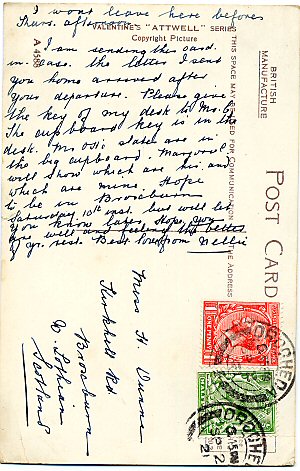 I wont leave here before
Thurs. afternoon
VALENTINE'S "ATTWELL" SERIES
Copyright Picture
A 458
I am sending this card
in case the letter I sent
you home arrived after
your departure. Please give
the key of my desk to Mr.
The cupboard key is in the
desk. slates are in
the big cupboard. Margaret
will show which are his and
which are mine. Hope
to be in Broxburn
Saturday 10th inst. but will let
you know later. Hope you
are well & feeling the better
of yr. rest. Best love from Nellie
THIS SPACE MAY BE USED FOR COMMUNICATION
THE ADDRESS
BRITISH
MANUFACTURE
POST CARD
Miss H. Dunne
Rd
Broxburn
W. Lothian
Scotland
DROGHEDA
DROGHEDA
21